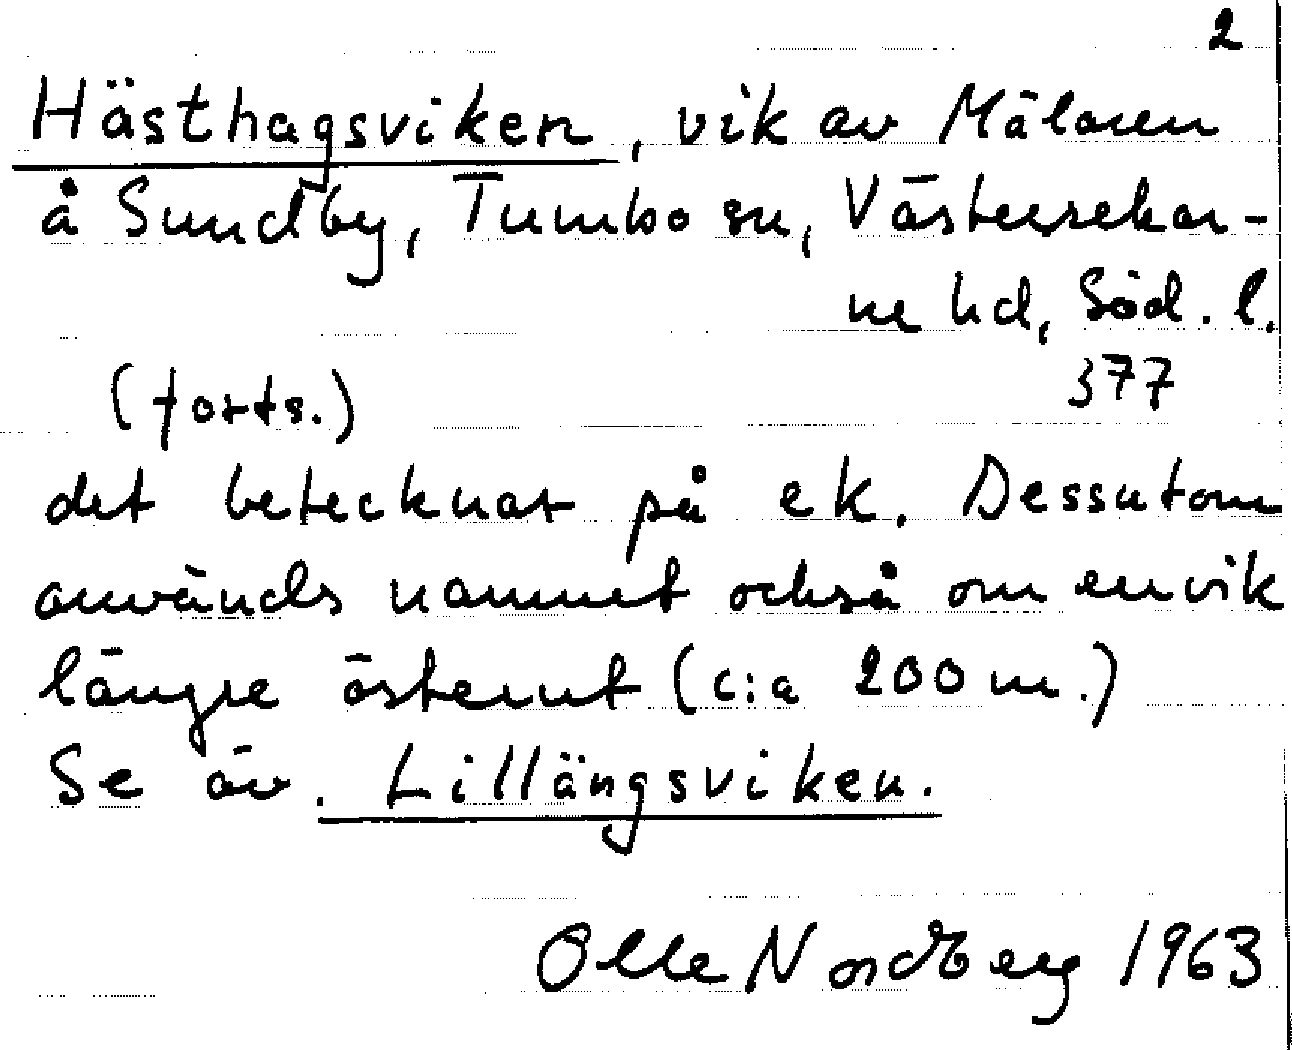 2
Hästhagsviken, vik av Mälaren
å Sundby, Tumbo sn, Västerrekar-
ne hd, Söd. l.
377
(forts.)
det betecknat på ek. Dessutom
används namnet också om en vik
längre österut (c:a 200 m.)
Se äv. Lillängsviken.
Olle Nordberg 1963